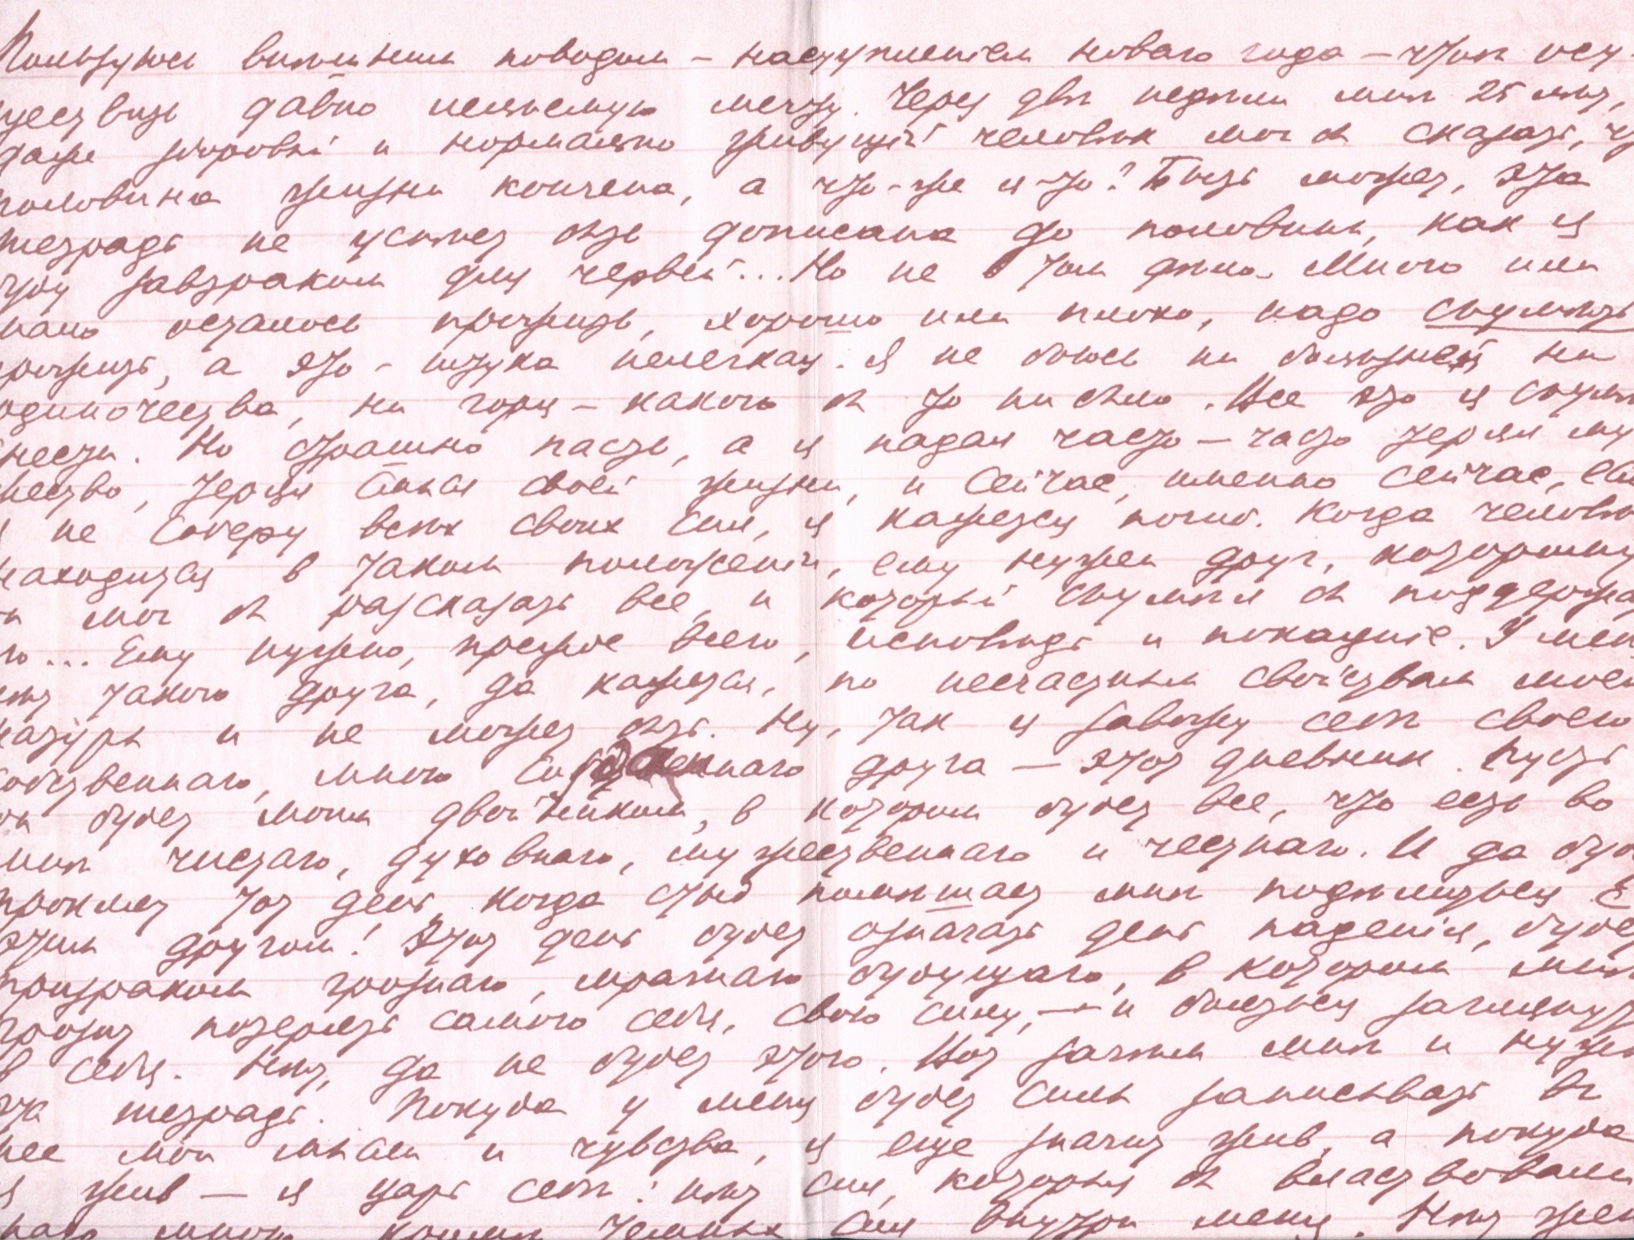 Пользуюсь внѣшним поводом – наступленіем новаго года – чтоб осу-
ществить давно лелѣемую мечту. Через двѣ недѣли мнѣ 25 лѣт,
даже здоровый и нормально живущій человѣк мог бы сказать, что
половина жизни кончена, а что-же я-то? Быть может, эта
тетрадь не успѣет быть дописана до половины, как я
буду завтраком для червей... Но не в том дѣло. Много или
мало осталось прожить, хорошо или плохо, надо сумѣть
прожить, а это – штука нелегкая. Я не боюсь ни болѣзней ни
одиночества, ни горя – какого бы то ни было. Все это я сумѣю
снести. Но страшно пасть, а я падал часто – часто терял му-
жество, терял смысл своей жизни, и сейчас, именно сейчас, если
я не соберу всѣх своих сил, я кажется погиб. Когда человѣк
находится в таком положеніи, ему нужен друг, которому
он мог бы рассказать все, и который сумѣл бы поддержать
его... Ему нужно, прежде всего, исповѣдь и покаяніе. У меня
нѣт такого друга, да кажется, по несчастным свойствам моей
натуры и не может быть. Ну, так я завожу себѣ своего
собственнаго, мною созданнаго друга – этот дневник. Пусть
он будет моим двойником, в котором будет все, что есть во
мнѣ чистаго, духовнаго, мужественнаго и честнаго. И да будет
проклят тот день когда стыд помѣшает мнѣ подѣлиться с
этим другом! Этот день будет означать день паденія, будет
призраком грознаго, мрачнаго будущаго, в котором мнѣ
грозит потерять самого себя, свою силу, – и бояться заглянуть
в себя. Нѣт, да не будет этого. Вот зачѣм мнѣ и нужна
эта тетрадь. Покуда у меня будет силы записывать в
нее мои мысли и чувства, я еще значит жив, а покуда
я жив – я царь себѣ: нѣт сил, которыя бы властвовали
надо мною кромѣ темных сил внутри меня. Нѣт